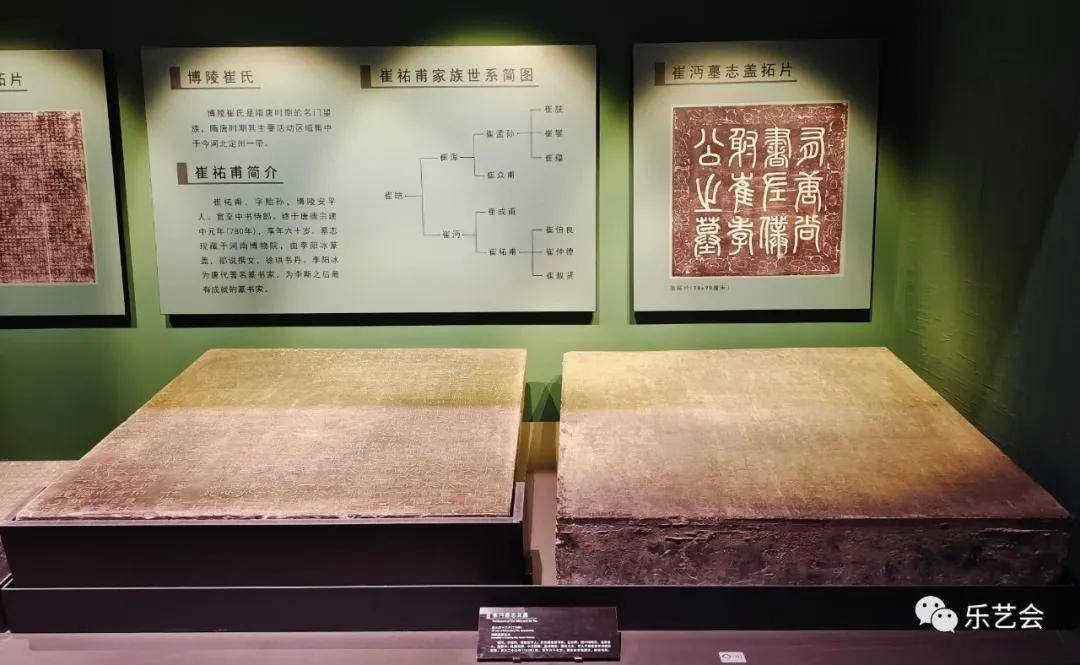 片
博陵崔氏
博陵崔氏是隋唐时期的名门望
族，隋唐时期其主要活动区域集中
于今河北定州一带。
崔祐甫简介
崔祐甫，字贻孙，博陵安平
人，官至中书侍郎，终于唐德宗建
中元年(780年)，享年六十岁。墓志
现藏于河南博物院，由李阳冰篆
盖，邵说撰文，徐珙书丹。李阳冰
为唐代著名篆书家，为李斯之后最
有成就的篆书家。
崔祐甫家族世系简图
崔皑
崔浑
崔沔
崔孟孙
崔众甫
崔成甫
崔祐甫
崔蕴
崔伯良
崔仲德
崔叔贤
崔沔墓志盖拓片
有唐尚
書左僕
射崔孝
公之墓
崔沔墓志及盖
乐艺会